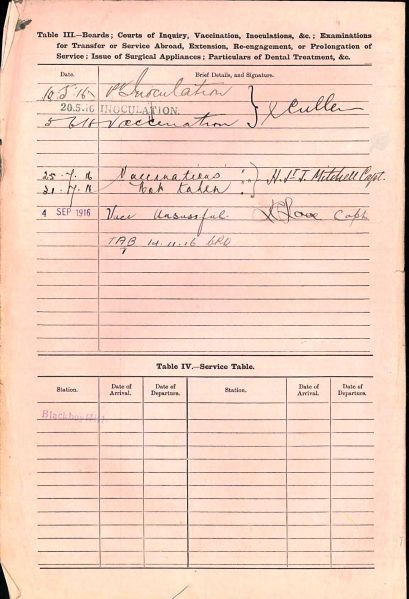 Table III.—Boards; Courts of Inquiry, Vaccination, Inoculations, &c.; Examinations
for Transfer or Service Abroad, Extension, Re-engagement, or Prolongation of
Service; Issue of Surgical Appliances; Particulars of Dental Treatment, &c.
Date. Brief Details, and Signature.
10.5.16 Inoculation
20.5.16 INOCULATION.
Vaccination Cullen
25.7.16 Vaccinations
Not taken H. St J. Mitchell Capt.
4 SEP 1916 Vacc Capt
TAB 14.11.16
Table IV.—Service Table.
Station. Date of Arrival. Date of Departure. Station. Date of Arrival. Date of Departure.